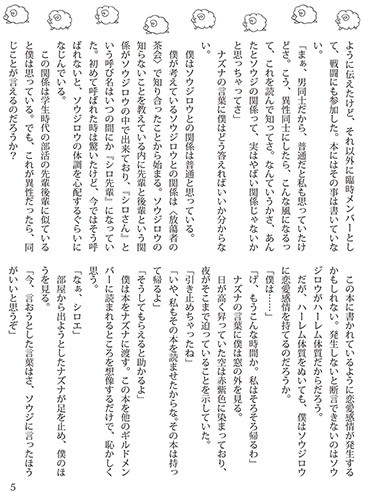 ように伝えたけど、それ以外に臨時メンバーとし
て、戦闘にも参加した。本にはその事は書いていな
い。
「まぁ、男同士だから、普通だと私も思っていたけ
どさ。こう、異性同士にしたら、こんな風になるっ
て、これを読んで知ってさ。なんていうかさ、あん
たとソウジの関係って、実はやばい関係じゃないか
と思っちゃってさ」
ナズナの言葉に僕はどう答えればいいか分からな
い。
ソウジロウとの関係は普通と思っている。
僕が考えているソウジロウとの関係は〈放蕩者の
茶会〉で知り合ったことから始まる。ソウジロウの
知らないことを教えている内に先輩と後輩という関
係がソウジロウの中で出来ており、『シロさん』と
いう呼び名はいつの間にか『シロ先輩』になってい
た。初めて呼ばれた時は驚いたけど、今ではそう呼
ばれないと、ソウジロウの体調を心配するぐらいに
なじんでいる。
この関係は学生時代の部活の先輩後輩に似ている
と僕は思っている。でも、これが異性だったら、同
じことが言えるのだろうか？
この本に書かれているように恋愛感情が発生する
かもしれない。発生しないと断言できないのはソウ
ジロウがハーレム体質だからだろう。
だが、ハーレム体質をぬいても、僕はソウジロウ
に恋愛感情を持てるのだろうか。
「僕は……」
「げ、もうこんな時間か。私はそろそろ帰るわ」
ナズナの言葉に僕は窓の外を見る。
日が高く昇っていた空は赤紫色に染まっており、
夜がそこまで迫っていることを示していた。
「引き止めちゃったね」
「いや、私もその本を読ませたからな。その本は持っ
て帰るよ」
「そうしてもらえると助かるよ」
僕は本をナズナに渡す。この本を他のギルドメン
バーに読まれるところを想像するだけで、恥かしく
思う。
「なぁ、シロエ」
部屋から出ようとしたナズナが足を止め、僕のほ
うを見る。
「今、言おうとした言葉はさ、ソウジに言ったほう
がいいと思うぞ」
5